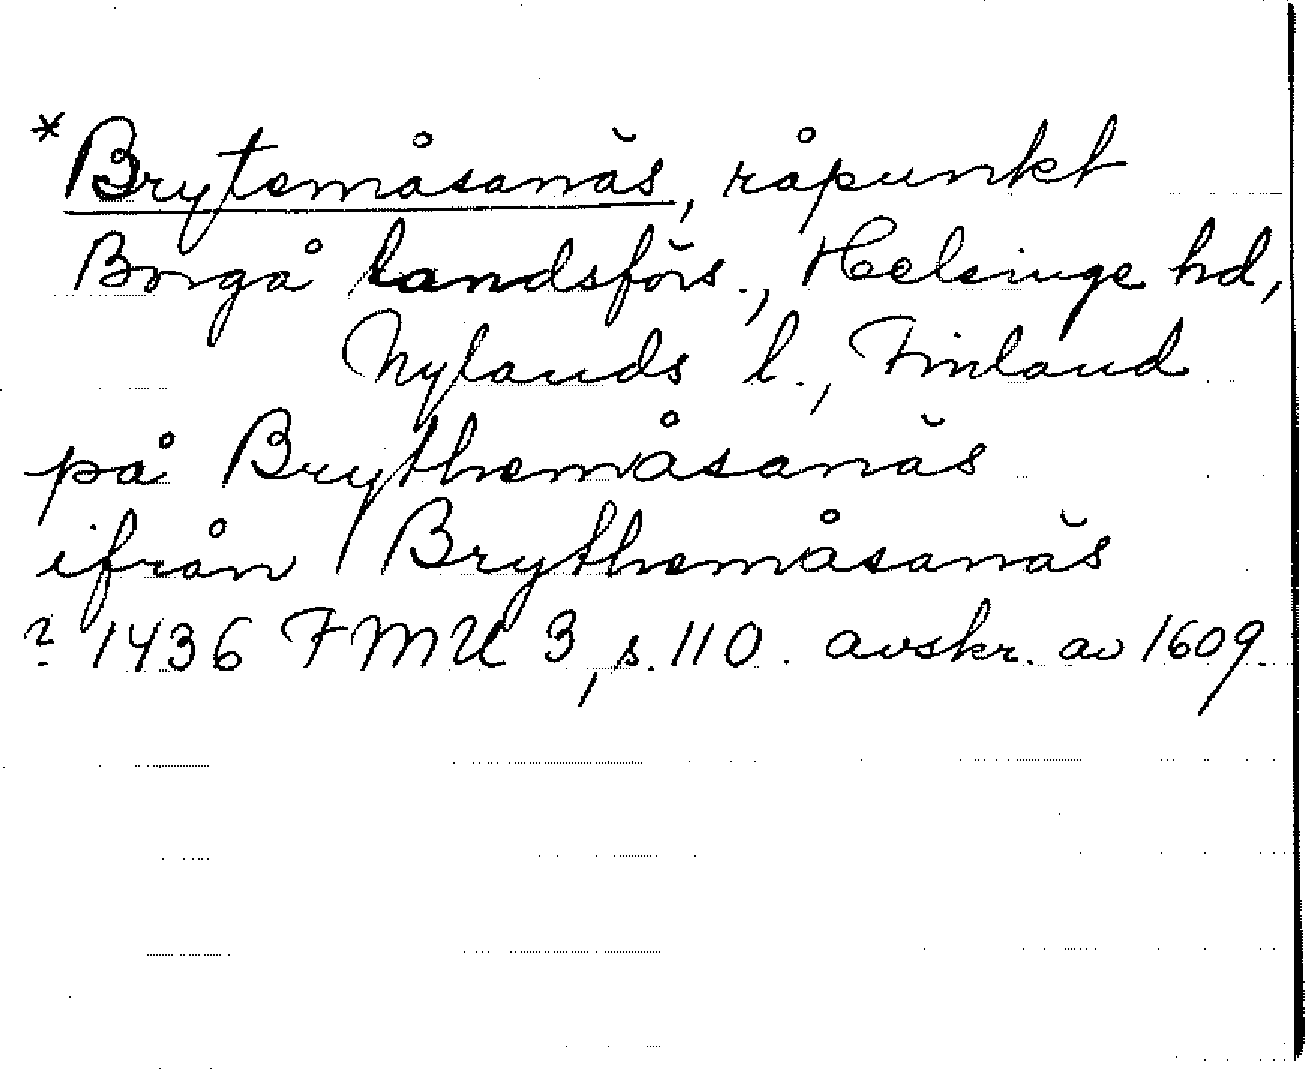 *Brytemåsanäs, råpunkt
Borgå landsförs., Helsinge hd,
Nylands l., Finland
på Brythemåsanäs
ifrån Brythemåsanäs
? 1436 FMU 3, s. 110. avskr. av 1609.